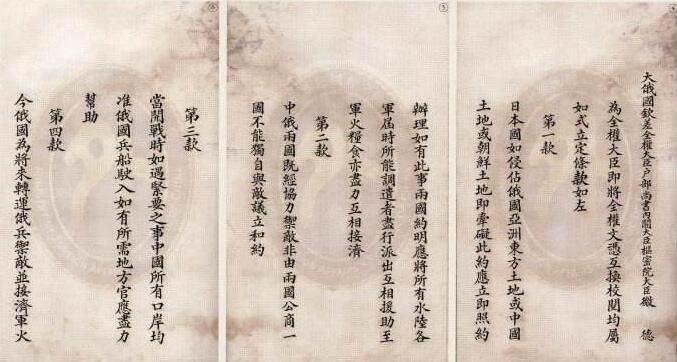 ④
大俄國欽差全權大臣户部尚書內閣大臣樞密院大臣微 德
為全權大臣即將全權文憑互換校閱均屬
如式立定條款如左
第一款
日本國如侵佔俄國亞洲東方土地或中國
土地或朝鮮土地即牽礙此約應立即照約
⑤
辦理如有此事兩國約明應將所有水陸各
軍屆時所能調遣者盡行派出互相援助至
軍火糧食亦盡力互相接濟
第二款
中俄兩國既經協力禦敵非由兩國公商一
國不能獨自與敵議立和約
⑥
第三款
當開戰時如遇緊要之事中國所有口岸均
准俄國兵船駛入如有所需地方官應盡力
幫助
第四款
今俄國為將來轉運俄兵禦敵並接濟軍火